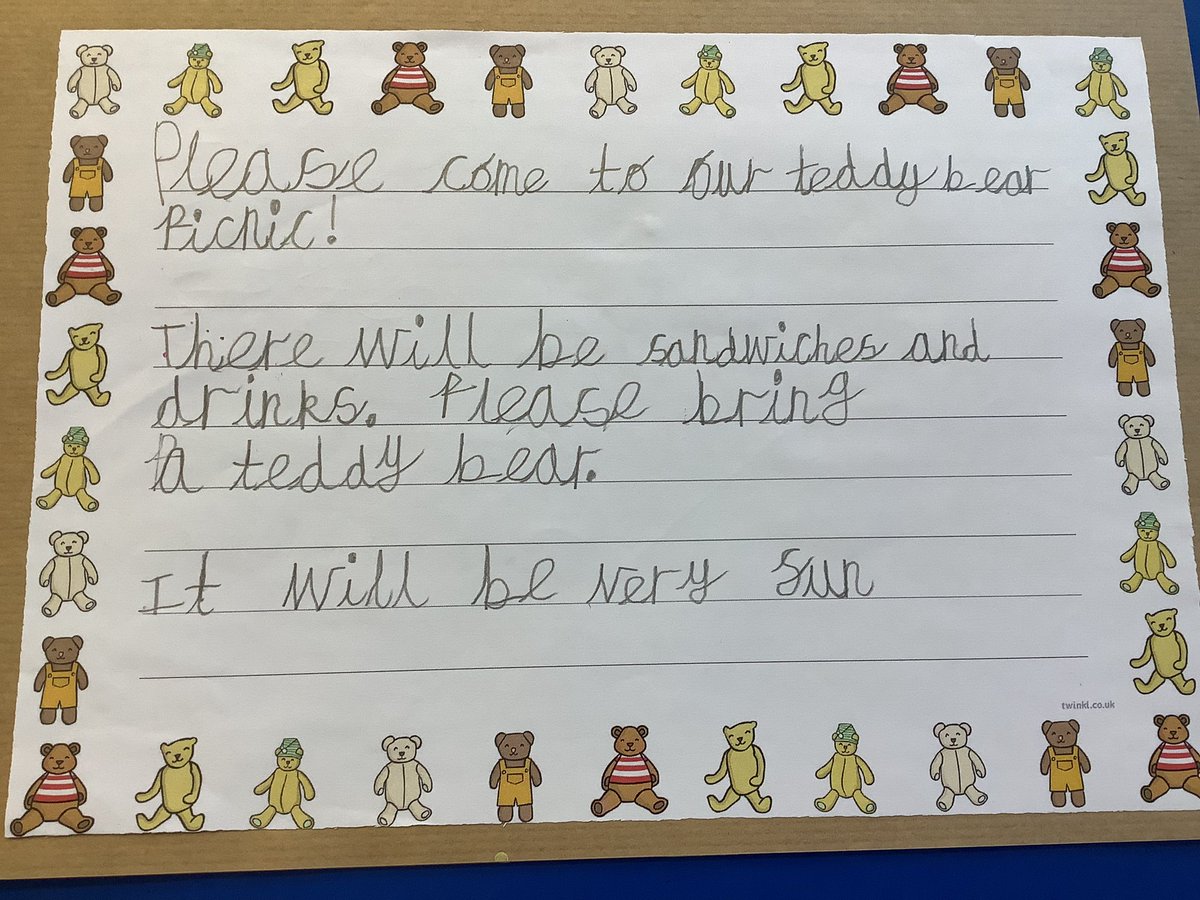 Please come to our teddy bear
Picnic!
There will be sandwiches and
drinks. Please bring
a teddy bear.
It will be very sun
twinkl.co.uk